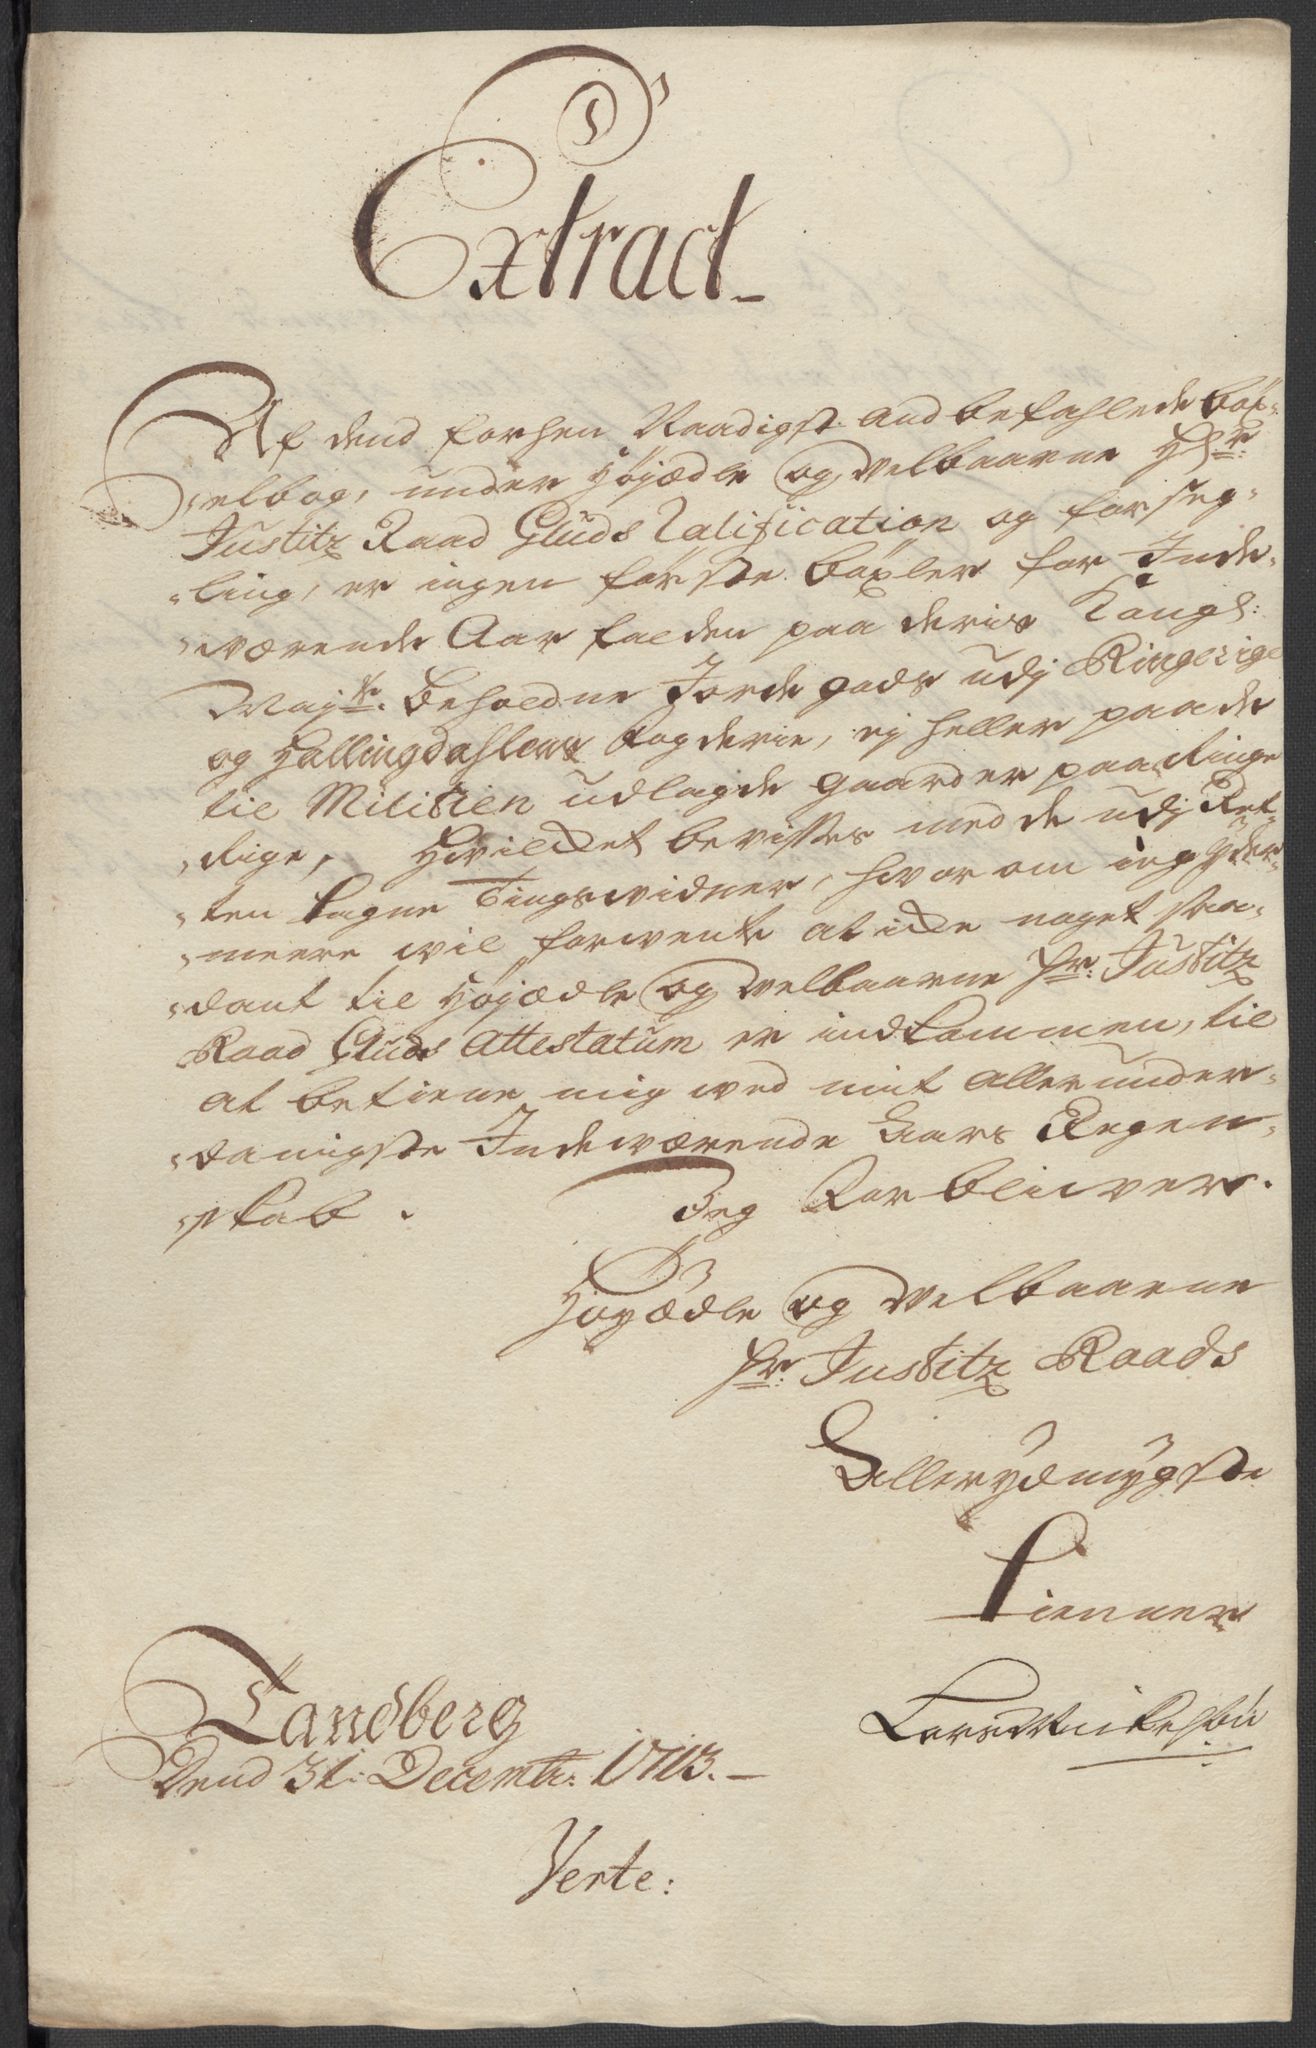 Extract
Af dend forhen Naadigst andbefahlede böx-
-elbog, under Höyædle og Velbaarne Hr:
Justitz Raad Gluds Calification og forseg-
-ling, er ingen förste böxler for Inde-
-værende Aar falden paa deris Kongl:
Mayts: beholdne Jorde gods udj Ringerige
og Hallingdahlens fogderie, ej heller paa de
til Militien udlagde gaarder paa Ringe-
-Rige, Hvilcket bevisses med de udj Ret-
-ten tagne Tingsvidner, hvorom ieg yder-
-meere vil forvente at icke noget saa-
-dant til Höyædle og Velbaarne Hr: Justitz
Raad Gluds Attestatum er indkommen, til
at betiene mig ved mit allerunder-
-danigste Indeværende Aars Regen-
-skab. Jeg Forblivver.
Höyædle og Velbaarne
Hr: Justitz Raads
Allerydmygste
Tienner
Tandberg
Dend 31: Decembr: 1713.
Verte: